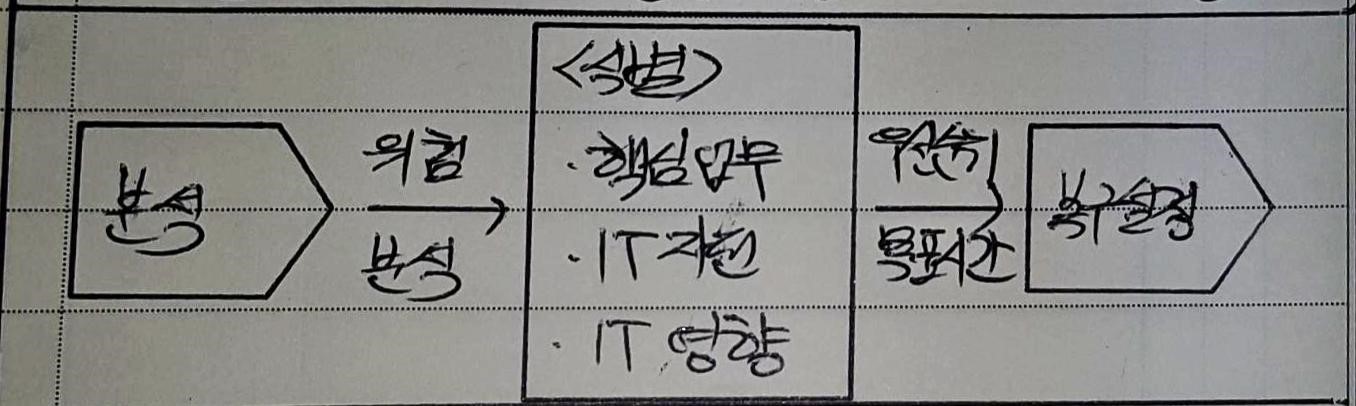 분석
위험
분석
<식별>
· 핵심업무
· IT 자원
· IT 영향
우선순위
목표시간
복구설정